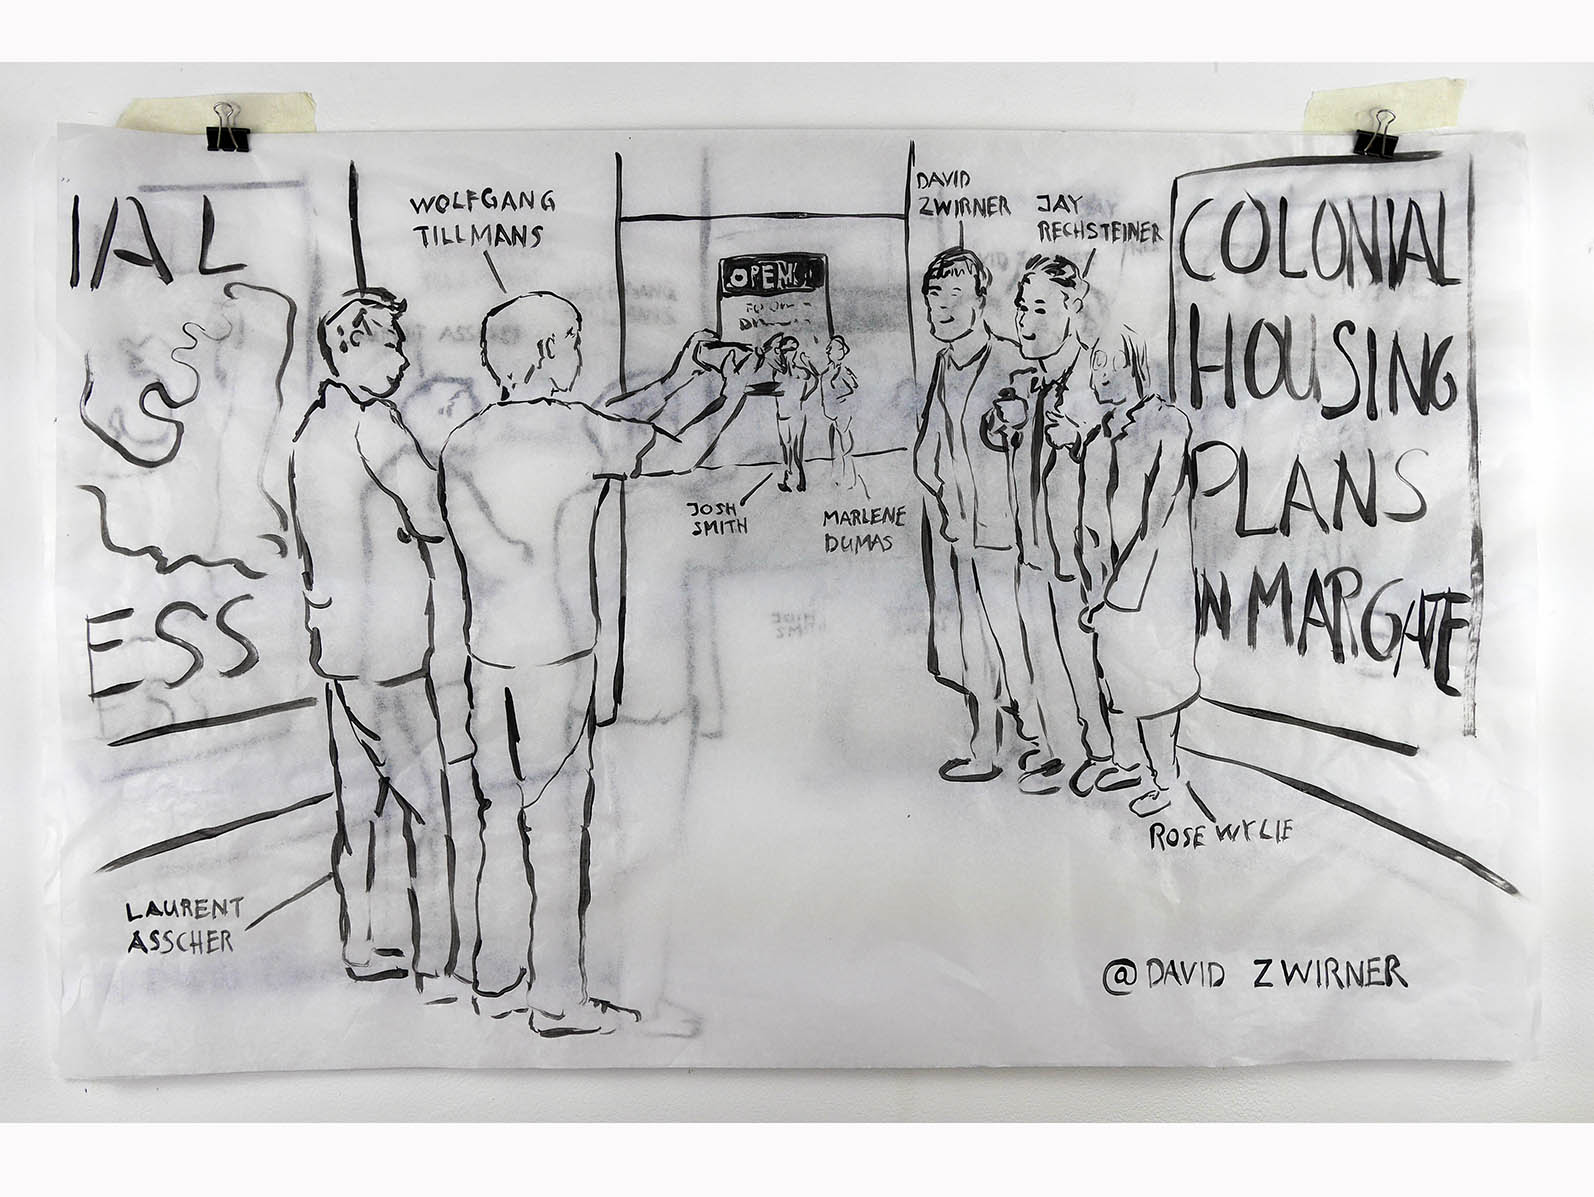 IAL
ESS
WOLFGANG
TILLMANS
OPEN
JOSH
SMITH
MARLENE
DUMAS
DAVID
ZWIRNER
JAY
RECHSTEINER
COLONIAL
HOUSING
PLANS
IN MARGATE
ROSE WYLIE
LAURENT
ASSCHER
@DAVID ZWIRNER